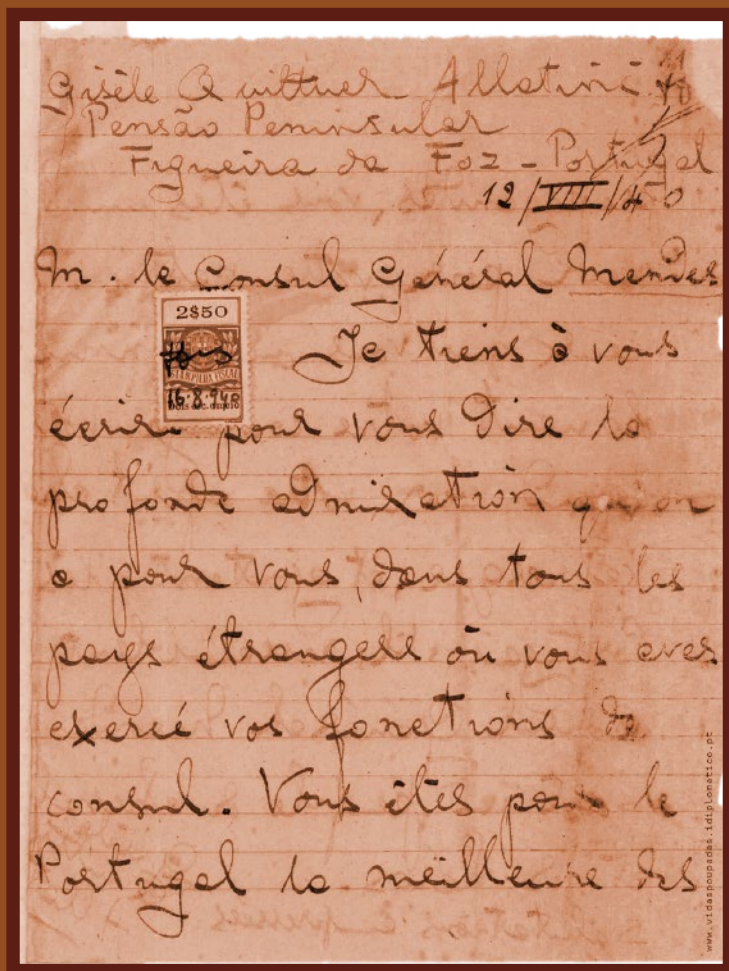 Gisèle Quittner Allatini
Pensão Peninsular
Figueira da Foz - Portugal
12/VIII/40
M. le Consul Général Mendes
2$50
Je tiens à vous
ESTAMPILHA FISCAL
16.8.940
écrire pour vous dire la
profonde admiration qu'on
a pour vous, dans tous les
pays étrangers où vous avez
exercé vos fonctions de
consul. Vous êtes pour le
Portugal la meilleure des
www.vidaspoupadas.idiplomatico.pt